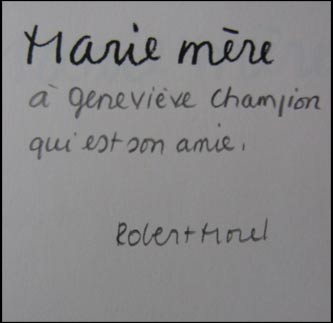 Marie mère
à Geneviève Champion
qui est son amie.
Robert Morel